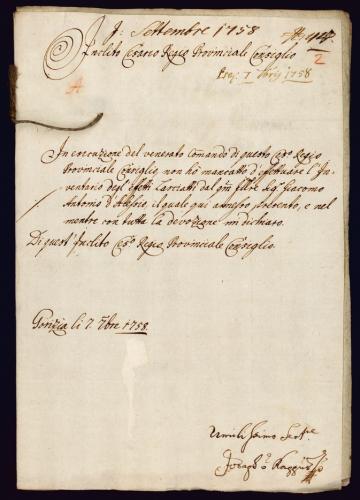 Settembre 1758
Inclito Cesareo Regio Provinciale Consiglio
2
A
In esecuzione del venerato Comando di questo Ces.o Regio
Provinciale Consiglio non hò mancato d'efettuare l'In
ventario degl'efetti lasciati dal Sig. Giacomo
Antonio d' il quale quì annesso presento, e nel
mentre con tutta la devozione mi dichiaro.
Di quest'Inclito Ces.o Regio Provinciale Consiglio
Gorizia li 7. 7bre 1758
Umilissimo